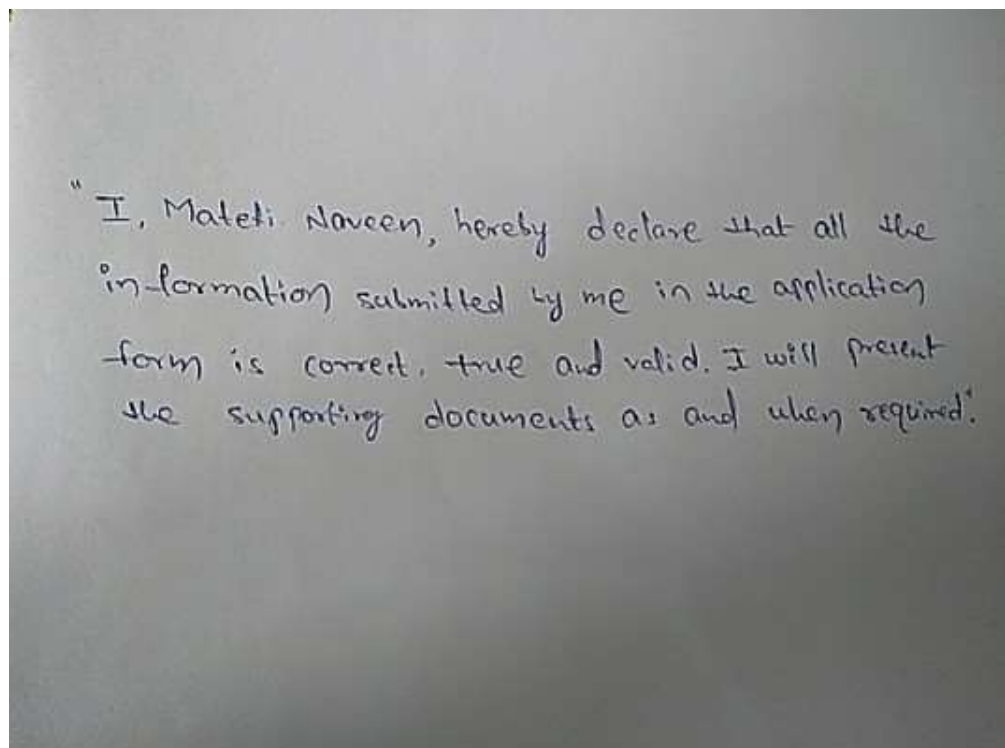 "I, Mateti Naveen, hereby declare that all the
information submitted by me in the application
form is correct, true and valid. I will present
the supporting documents as and when required".